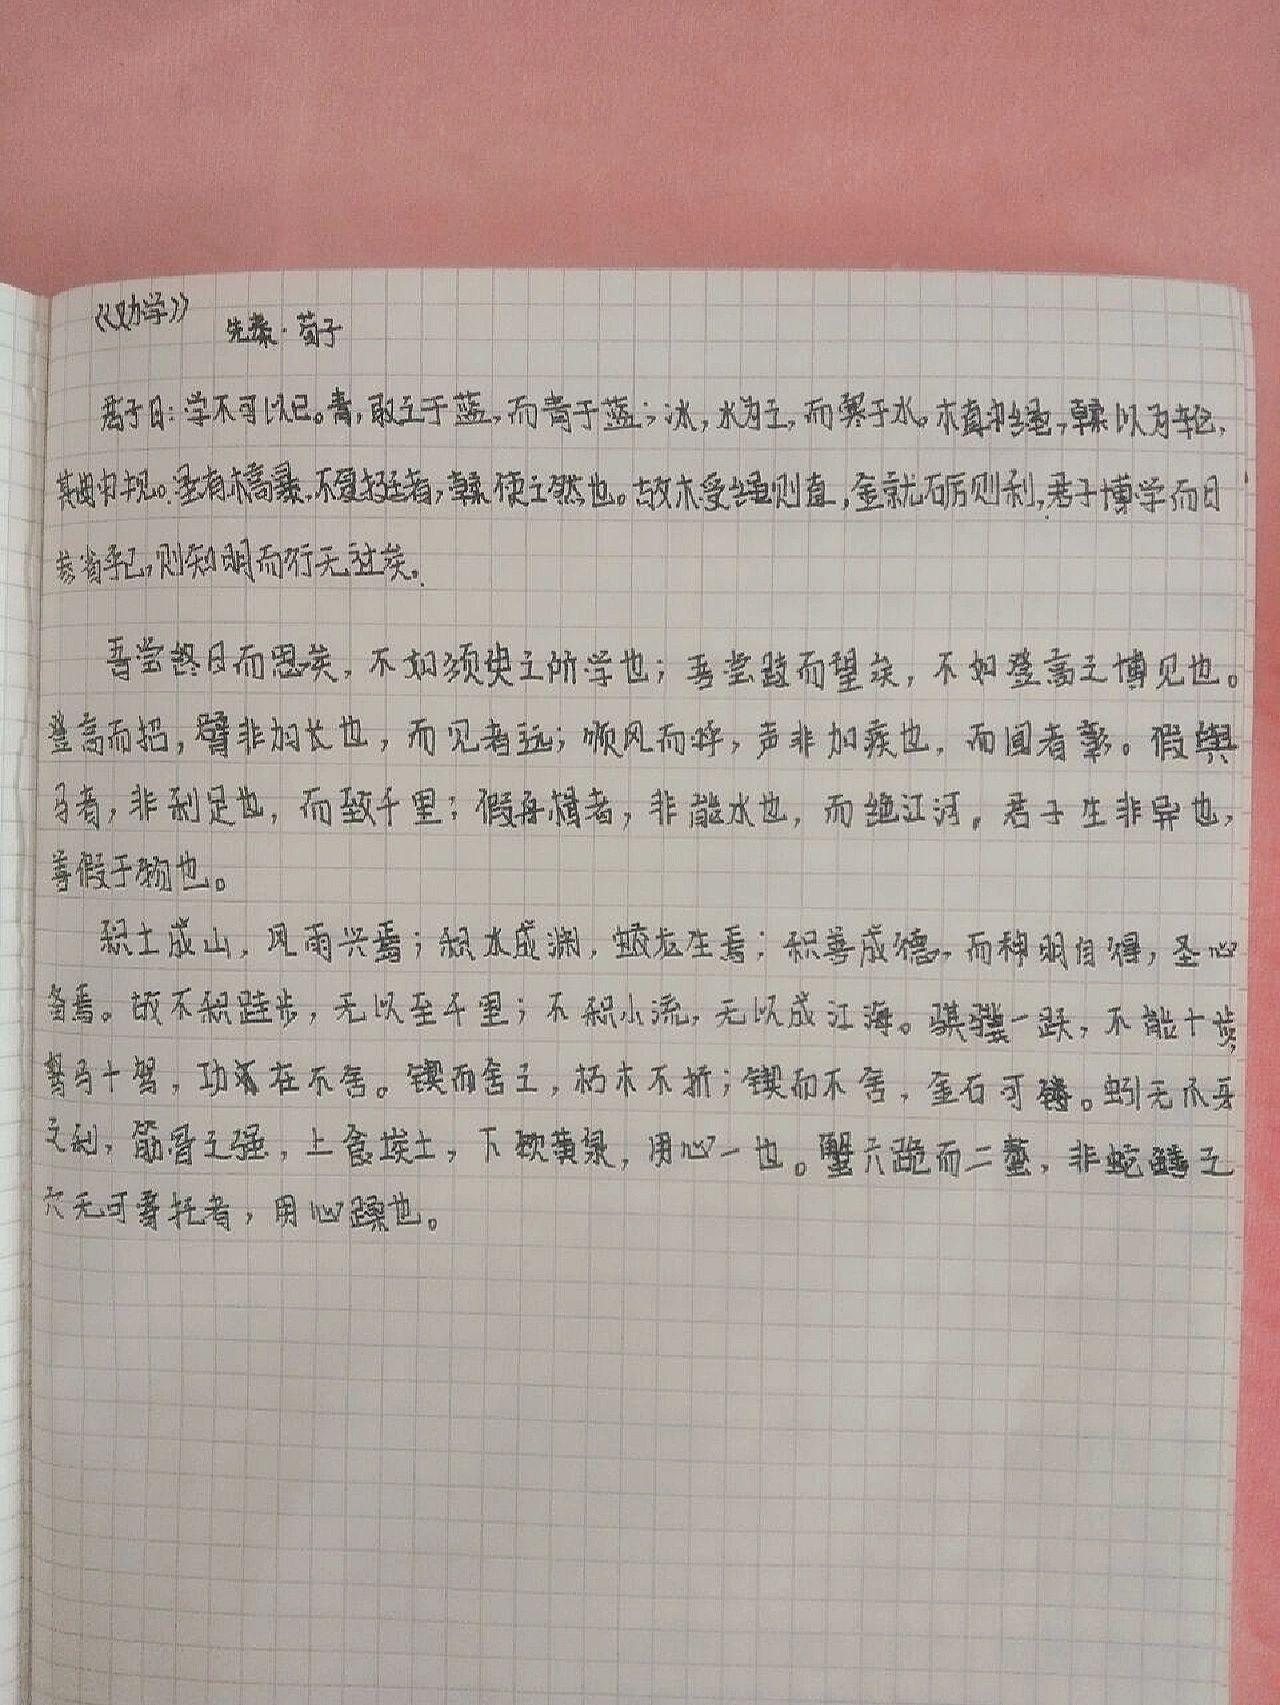 《劝学》
先秦·荀子
君子曰：学不可以已。青，取之于蓝，而青于蓝；冰，水为之，而寒于水。木直中绳，輮以为轮，
其曲中规。虽有槁暴，不复挺者，輮使之然也。故木受绳则直，金就砺则利，君子博学而日
参省乎己，则知明而行无过矣。
吾尝终日而思矣，不如须臾之所学也；吾尝跂而望矣，不如登高之博见也。
登高而招，臂非加长也，而见者远；顺风而呼，声非加疾也，而闻者彰。假舆
马者，非利足也，而致千里；假舟楫者，非能水也，而绝江河。君子生非异也，
善假于物也。
积土成山，风雨兴焉；积水成渊，蛟龙生焉；积善成德，而神明自得，圣心
备焉。故不积跬步，无以至千里；不积小流，无以成江海。骐骥一跃，不能十步，
驽马十驾，功在不舍。锲而舍之，朽木不折；锲而不舍，金石可镂。蚓无爪牙
之利，筋骨之强，上食埃土，下饮黄泉，用心一也。蟹六跪而二螯，非蛇鳝之
穴无可寄托者，用心躁也。